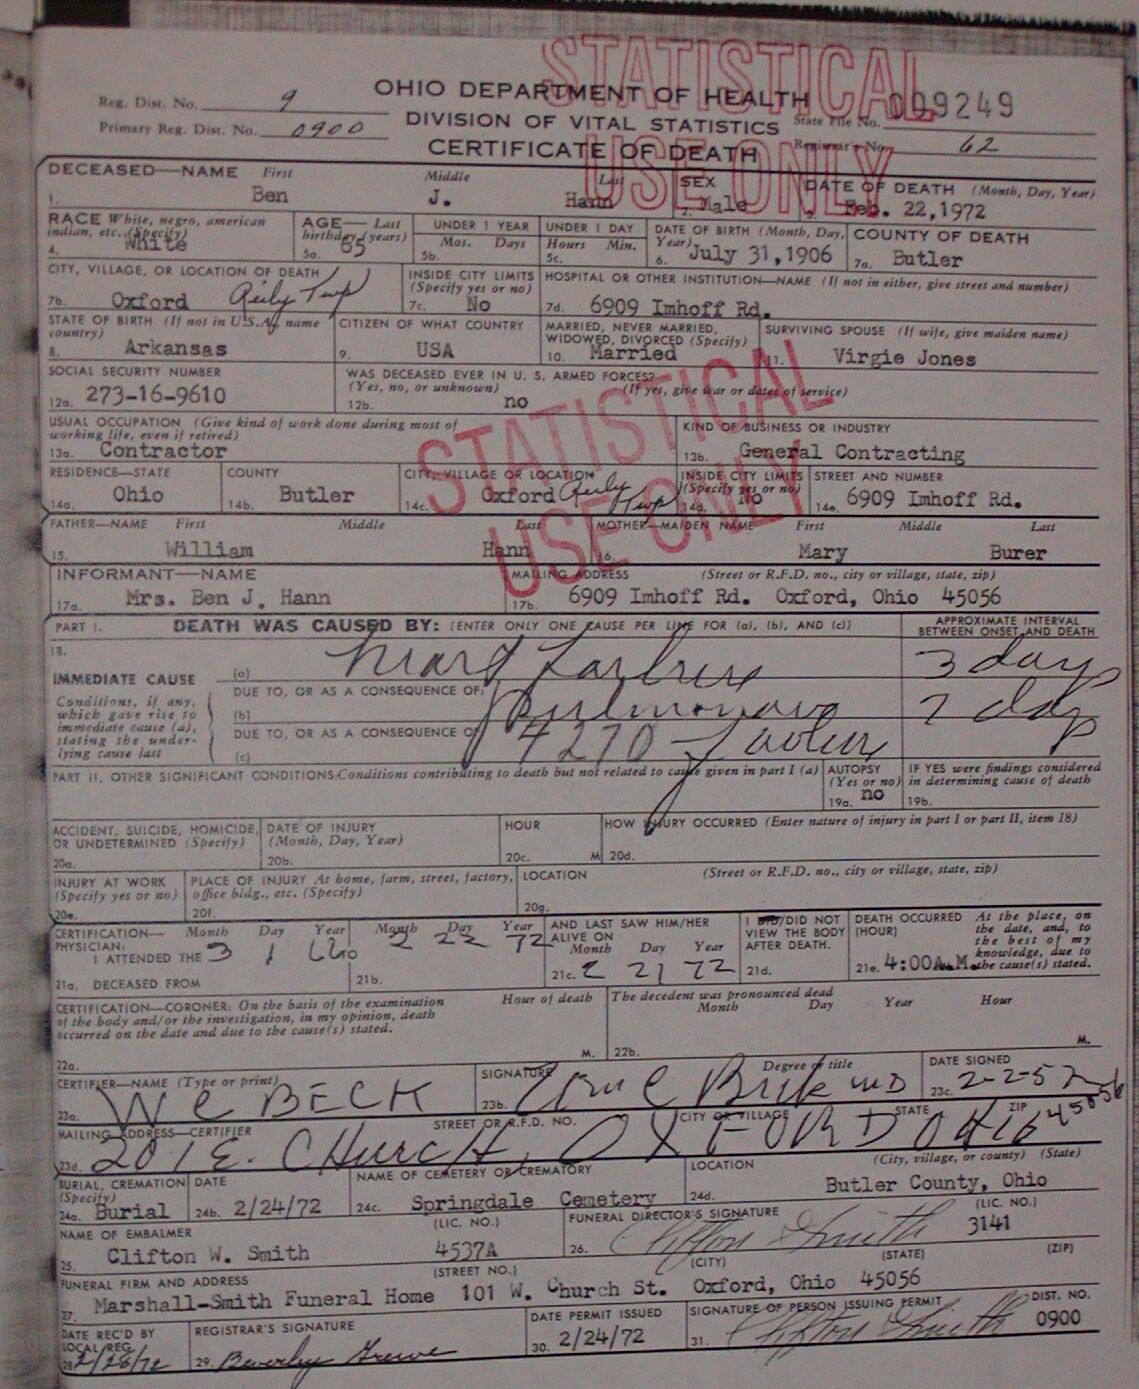 STATISTICAL
USE ONLY
Reg. Dist. No. 9
OHIO DEPARTMENT OF HEALTH
009249
Primary Reg. Dist. No. 0900
DIVISION OF VITAL STATISTICS
State File No.
CERTIFICATE OF DEATH
Registrar's No. 62
DECEASED—NAME First Middle Last SEX DATE OF DEATH (Month, Day, Year)
1. Ben J. Hann 2. Male 3. Feb. 22,1972
RACE White, negro, american indian, etc. (Specify) AGE—Last birthday (years) UNDER 1 YEAR UNDER 1 DAY DATE OF BIRTH (Month, Day, Year) COUNTY OF DEATH
Mos. Days Hours Min.
4. White 5a. 65 5b. 5c. 6. July 31,1906 7a. Butler
CITY, VILLAGE, OR LOCATION OF DEATH INSIDE CITY LIMITS (Specify yes or no) HOSPITAL OR OTHER INSTITUTION—NAME (If not in either, give street and number)
7b. Oxford Reily Twp 7c. No 7d. 6909 Imhoff Rd.
STATE OF BIRTH (If not in U.S.A., name country) CITIZEN OF WHAT COUNTRY MARRIED, NEVER MARRIED, WIDOWED, DIVORCED (Specify) SURVIVING SPOUSE (If wife, give maiden name)
8. Arkansas 9. USA 10. Married 11. Virgie Jones
SOCIAL SECURITY NUMBER WAS DECEASED EVER IN U. S. ARMED FORCES?
(Yes, no, or unknown) (If yes, give war or dates of service)
12a. 273-16-9610 12b. no
STATISTICAL
USE ONLY
USUAL OCCUPATION (Give kind of work done during most of working life, even if retired) KIND OF BUSINESS OR INDUSTRY
13a. Contractor 13b. General Contracting
RESIDENCE—STATE COUNTY CITY, VILLAGE OR LOCATION INSIDE CITY LIMITS (Specify yes or no) STREET AND NUMBER
14a. Ohio 14b. Butler 14c. Oxford Reily Twp 14d. No 14e. 6909 Imhoff Rd.
FATHER—NAME First Middle Last MOTHER—MAIDEN NAME First Middle Last
15. William Hann 16. Mary Burer
INFORMANT—NAME MAILING ADDRESS (Street or R.F.D. no., city or village, state, zip)
17a. Mrs. Ben J. Hann 17b. 6909 Imhoff Rd. Oxford, Ohio 45056
PART I. DEATH WAS CAUSED BY: [ENTER ONLY ONE CAUSE PER LINE FOR (a), (b), AND (c)] APPROXIMATE INTERVAL BETWEEN ONSET AND DEATH
18.
IMMEDIATE CAUSE (a) Heart Failure 3 days
Conditions, if any, which gave rise to immediate cause (a), stating the underlying cause last
DUE TO, OR AS A CONSEQUENCE OF:
(b) Pulmonary
DUE TO, OR AS A CONSEQUENCE OF
(c) 4270
PART II. OTHER SIGNIFICANT CONDITIONS: Conditions contributing to death but not related to cause given in part I (a) AUTOPSY (Yes or no) IF YES were findings considered in determining cause of death
19a. no 19b.
ACCIDENT, SUICIDE, HOMICIDE, OR UNDETERMINED (Specify) DATE OF INJURY (Month, Day, Year) HOUR HOW INJURY OCCURRED (Enter nature of injury in part I or part II, item 18)
20a. 20b. 20c. M 20d.
INJURY AT WORK (Specify yes or no) PLACE OF INJURY At home, farm, street, factory, office bldg., etc. (Specify) LOCATION (Street or R.F.D. no., city or village, state, zip)
20e. 20f. 20g.
CERTIFICATION—PHYSICIAN: Month Day Year Month Day Year AND LAST SAW HIM/HER ALIVE ON I DID/DID NOT VIEW THE BODY AFTER DEATH. DEATH OCCURRED (HOUR) At the place, on the date, and, to the best of my knowledge, due to the cause(s) stated.
I ATTENDED THE 3 1 2 22 72 Month Day Year
21a. DECEASED FROM 21b. 21c. 2 21 72 21d. 21e. 4:00A.M.
CERTIFICATION—CORONER: On the basis of the examination of the body and/or the investigation, in my opinion, death occurred on the date and due to the cause(s) stated. Hour of death The decedent was pronounced dead
Month Day Year Hour
22a. M. 22b. M.
CERTIFIER—NAME (Type or print) SIGNATURE Degree or title DATE SIGNED
23a. W C BECK 23b. Wm C Beck MD 23c.
MAILING ADDRESS—CERTIFIER STREET OR R.F.D. NO. CITY OR VILLAGE STATE ZIP
23d. 201 E. CHURCH, OXFORD OHIO 45056
BURIAL, CREMATION (Specify) DATE NAME OF CEMETERY OR CREMATORY LOCATION (City, village, or county) (State)
24a. Burial 24b. 2/24/72 24c. Springdale Cemetery 24d. Butler County, Ohio
NAME OF EMBALMER (LIC. NO.) FUNERAL DIRECTOR'S SIGNATURE (LIC. NO.)
25. Clifton W. Smith 4537A 26. Clifton Smith 3141
FUNERAL FIRM AND ADDRESS (STREET NO.) (CITY) (STATE) (ZIP)
27. Marshall-Smith Funeral Home 101 W. Church St. Oxford, Ohio 45056
DATE REC'D BY LOCAL REG. REGISTRAR'S SIGNATURE DATE PERMIT ISSUED SIGNATURE OF PERSON ISSUING PERMIT DIST. NO.
28. 2/28/72 29. Beverley 30. 2/24/72 31. Clifton Smith 0900